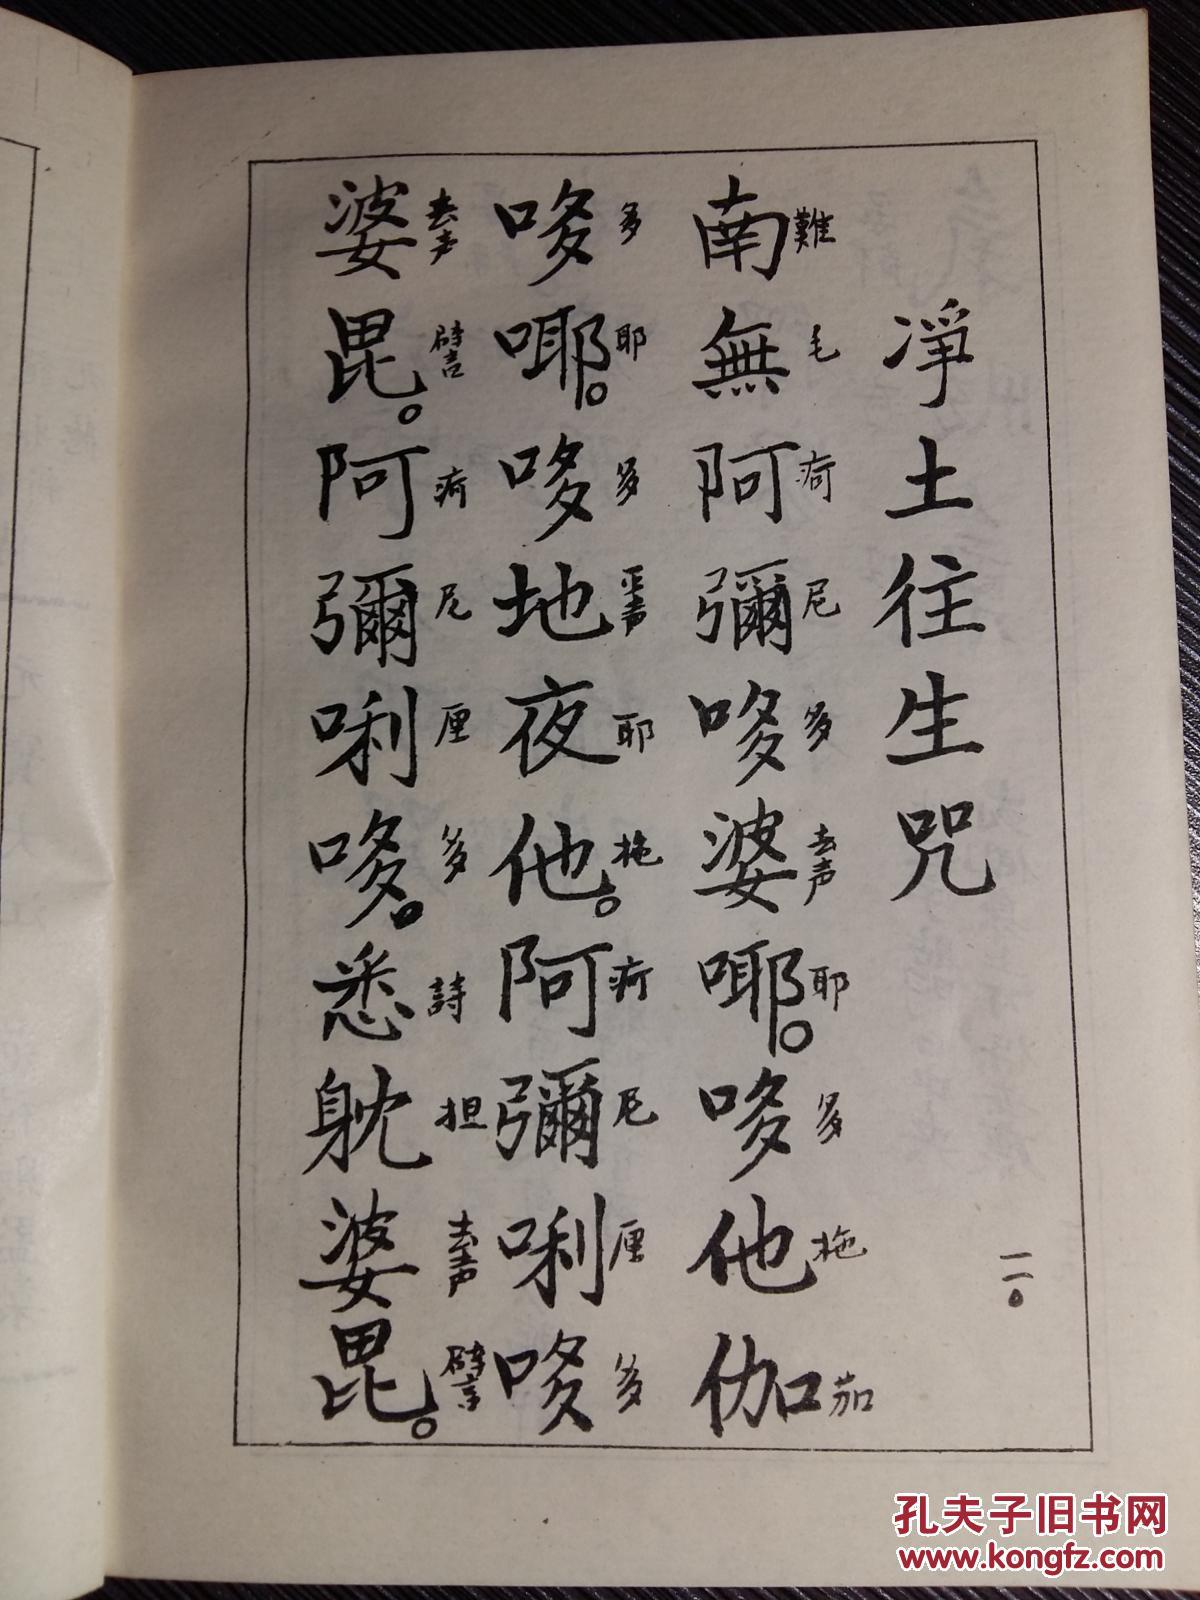 淨土往生咒
一二〇
南無阿彌哆婆㖿。哆他伽
難毛疴尼多去声耶多拖茄
哆㖿。哆地夜他。阿彌唎哆
多耶多平声耶拖疴尼厘多
婆毘。阿彌唎哆。悉耽婆毘。
去声譬疴尼厘多詩担去声譬
孔夫子旧书网
www.kongfz.com